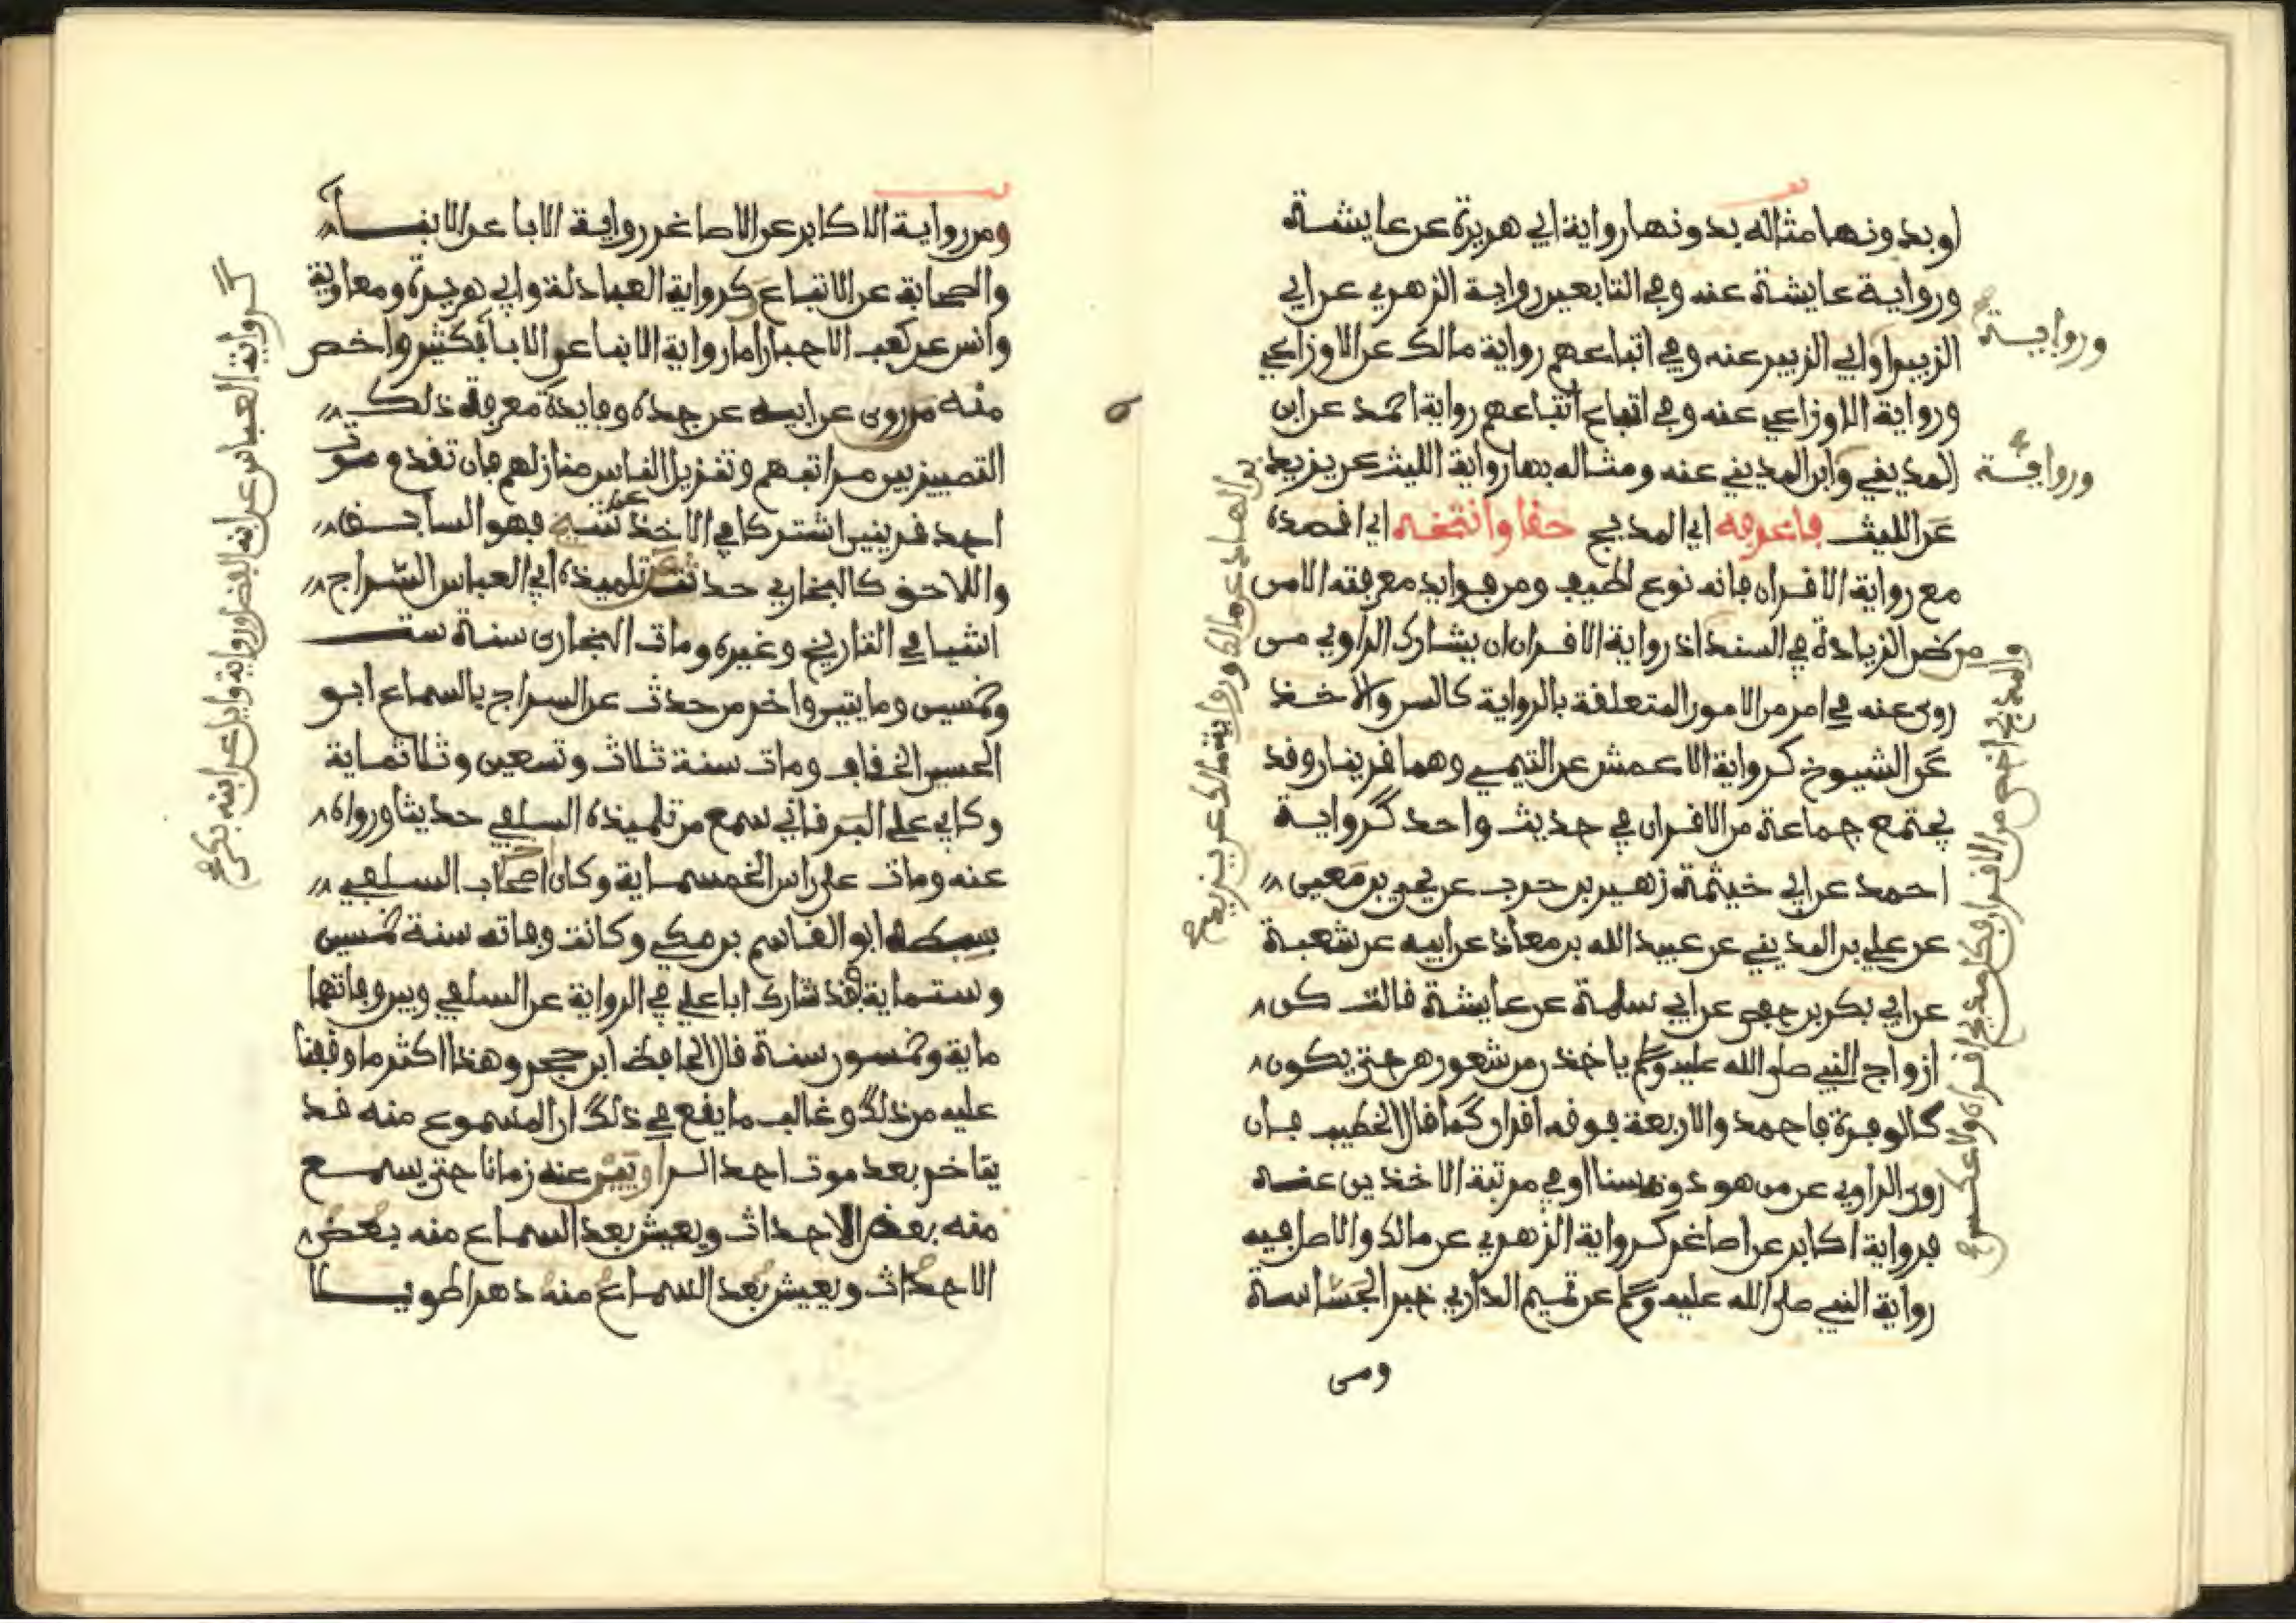 او بدونها مثاله بدونها رواية ابي هريرة عن عايشة
ورواية عايشة عنه وفي التابعين رواية الزهري عن ابي
الزبير وابي الزبير عنه وفي اتباعهم رواية مالك عن الاوزاعي
ورواية الاوزاعي عنه وفي اتباع اتباعهم رواية احمد عن ابن
المديني وابن المديني عنه ومثاله بها رواية الليث عن يزيد
عن الليث فاعرفه اي المدبج حقا وانتخه اي اقصده
مع رواية الاقران فانه نوع لطيف ومن فوايد معرفته الامن
من ظن الزيادة في السند اذ رواية الاقران ان يشارك الراوي من
روى عنه في امر من الامور المتعلقة بالرواية كالسن والاخذ
عن الشيوخ كرواية الاعمش عن التيمي وهما قرينان وقد
يجتمع جماعة من الاقران في حديث واحد كرواية
احمد عن ابي خيثمة زهير بن حرب عن يحي بن معين
عن علي بن المديني عن عبيد الله بن معاذ عن ابيه عن شعبة
عن ابي بكر بن حفص عن ابي سلمة عن عايشة قالت كن
ازواج النبي صلى الله عليه وسلم ياخذن من شعورهن حتى يكون
كالوفرة فاحمد والاربعة فوقه اقران كما قال الخطيب فان
روى الراوي عن من هو دونه سنا او في مرتبة الاخذين عنه
فرواية اكابر عن اصاغر كرواية الزهري عن مالك والاصل فيه
رواية النبي صلى الله عليه وسلم عن تميم الداري خبر الجساسة
ومن
ورواية
ورواية
بن الهاد عن مالك ورواية مالك عن يزيد
والمدبج اخص من الاقران فكل مدبج اقران ولا عكس
ومن رواية الاكابر عن الاصاغر رواية الابا عن الابنا
والصحابة عن الاتباع كرواية العبادلة وابي هريرة ومعاوية
وانس عن كعب الاحبار اما رواية الابنا عن الابا فكثير واخص
منه من روى عن ابيه عن جده وفايدة معرفة ذلك
التمييز بين مراتبهم وتنزيل الناس منازلهم فان تقدم موت
احد قرينين اشتركا في الاخذ عن شيخ فهو السابق
واللاحق كالبخاري حدث عن تلميذه ابي العباس السراج
اشيا في التاريخ وغيره ومات البخارى سنة ست
وخمسين ومايتين واخر من حدث عن السراج بالسماع ابو
الحسين الخفاف ومات سنة ثلاث وتسعين وثلاثماية
وكابي علي البرقاني سمع من تلميذه السلفي حديثا ورواه
عنه ومات على راس الخمسماية وكان اخر اصحاب السلفي
سبطه ابو القاسم بن مكي وكانت وفاته سنة خمسين
وستماية فقد شارك ابا علي في الرواية عن السلفي وبين وفاتهما
ماية وخمسون سنة قال الحافظ ابن حجر وهذا اكثر ما وقفنا
عليه من ذلك وغالب ما يقع في ذلك ان المسموع منه قد
يتاخر بعد موت احد الراويين عنه زمانا حتى يسمع
منه بعض الاحداث ويعيش بعد السماع منه بعض
الاحداث ويعيش بعد السماع منه دهرا طويلا
كرواية العباس عن ابنه الفضل ورواية وايل عن ابنه بكر